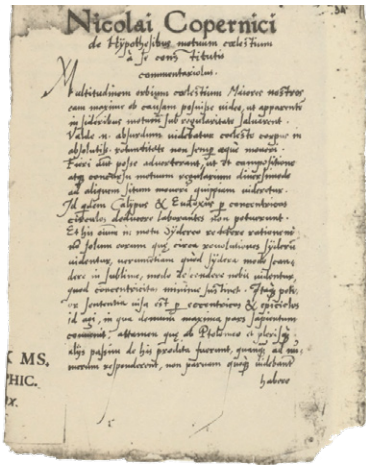 Nicolai Copernici
de Hypothesibus motuum cœlestium
à se constitutis
commentariolus.
Multitudinem orbium cœlestium Maiores nostros
eam maxime ob causam posuisse video, ut apparentē
in sideribus motum sub regularitate salvarent.
Valde n. absurdum videbatur cœleste corpus in
absolutiss. rotunditate non semp. æque moveri.
Fieri aut posse adverterant, ut et compositione
atq concursu motuum regularium diversimode
ad aliquem situm moveri quippiam videretur.
Id qdem Calippus & Eudoxus p concentricos
circulos deducere laborantes non potuerunt.
Et his oium in motu Sydereo reddere rationem
nō solum eorum quę circa revolutiones syderū
videntur, verumetiam quod sydera modo scan-
dere in sublime, modo descendere nobis videntur,
quod concentricitas minime sustinet. Itaq poti-
or sententia visa est p eccentricos & epiciclos
id agi, in qua demum maxima pars sapientum
convenit, attamen quę ab Ptolomeo et plerisq
alijs passim de his prodita fuerunt, quanq ad nu-
merum responderent, non parvam quoq videbant
habere
MS.
PHIC.